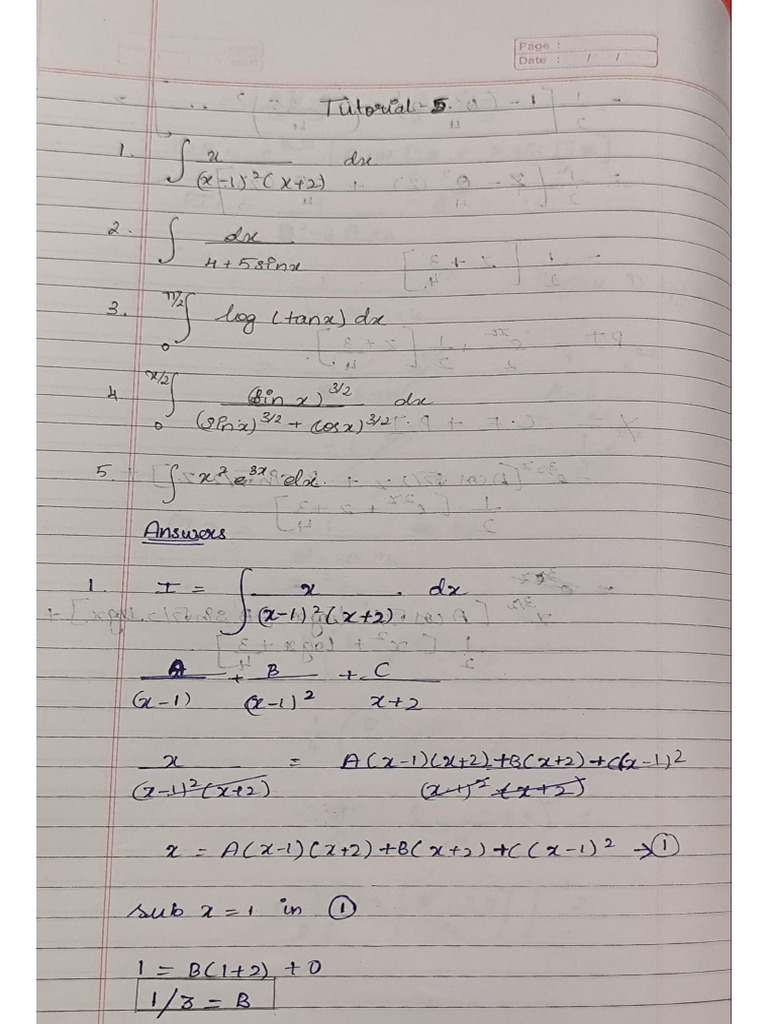 Page :
Date : / /
Tutorial-5.
1. ∫ x / (x-1)²(x+2) dx
2. ∫ dx / 4+5sinx
3. π/2 ∫ 0 log (tanx) dx
4 π/2 ∫ 0 (sin x)^3/2 / (sinx)^3/2 + (cosx)^3/2 dx
5. ∫ x² e^3x dx.
Answers
1. I = ∫ x / (x-1)²(x+2) . dx
A / (x-1) + B / (x-1)² + C / x+2
x / (x-1)²(x+2) = A(x-1)(x+2)+B(x+2)+C(x-1)² / (x-1)² (x+2)
x = A(x-1)(x+2)+B(x+2)+C(x-1)² → ①
sub x=1 in ①
1 = B(1+2) + 0
1/3 = B